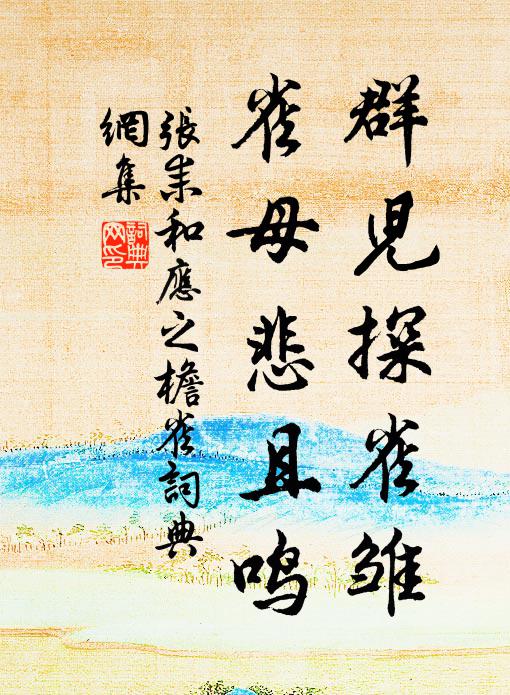 群児探雀雏
雀母悲且鸣
張耒和應之檐雀詞典
網集
詞典
网印